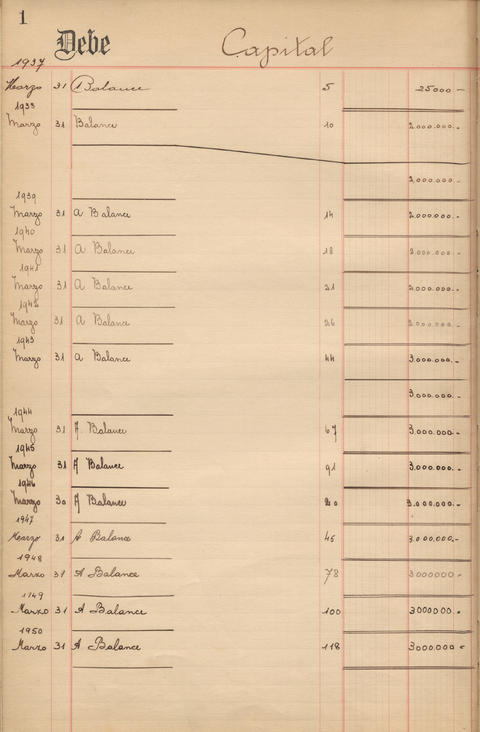 1
Debe Capital
1937
Marzo 31 A Balance 5 25000 -
1938
Marzo 31 Balance 10 2.000.000.-
2.000.000.-
1939
Marzo 31 A Balance 14 2.000.000.-
1940
Marzo 31 A Balance 18 2.000.000.-
1941
Marzo 31 A Balance 21 2.000.000.-
1942
Marzo 31 A Balance 26 2.000.000.-
1943
Marzo 31 A Balance 44 3.000.000.-
3.000.000.-
1944
Marzo 31 A Balance 67 3.000.000.-
1945
Marzo 31 A Balance 91 3.000.000.-
1946
Marzo 30 A Balance 20 3.000.000.-
1947
Marzo 31 A Balance 45 3.000.000.-
1948
Marzo 31 A Balance 78 3000000 -
1949
Marzo 31 A Balance 100 3000000.-
1950
Marzo 31 A Balance 118 3000000 -